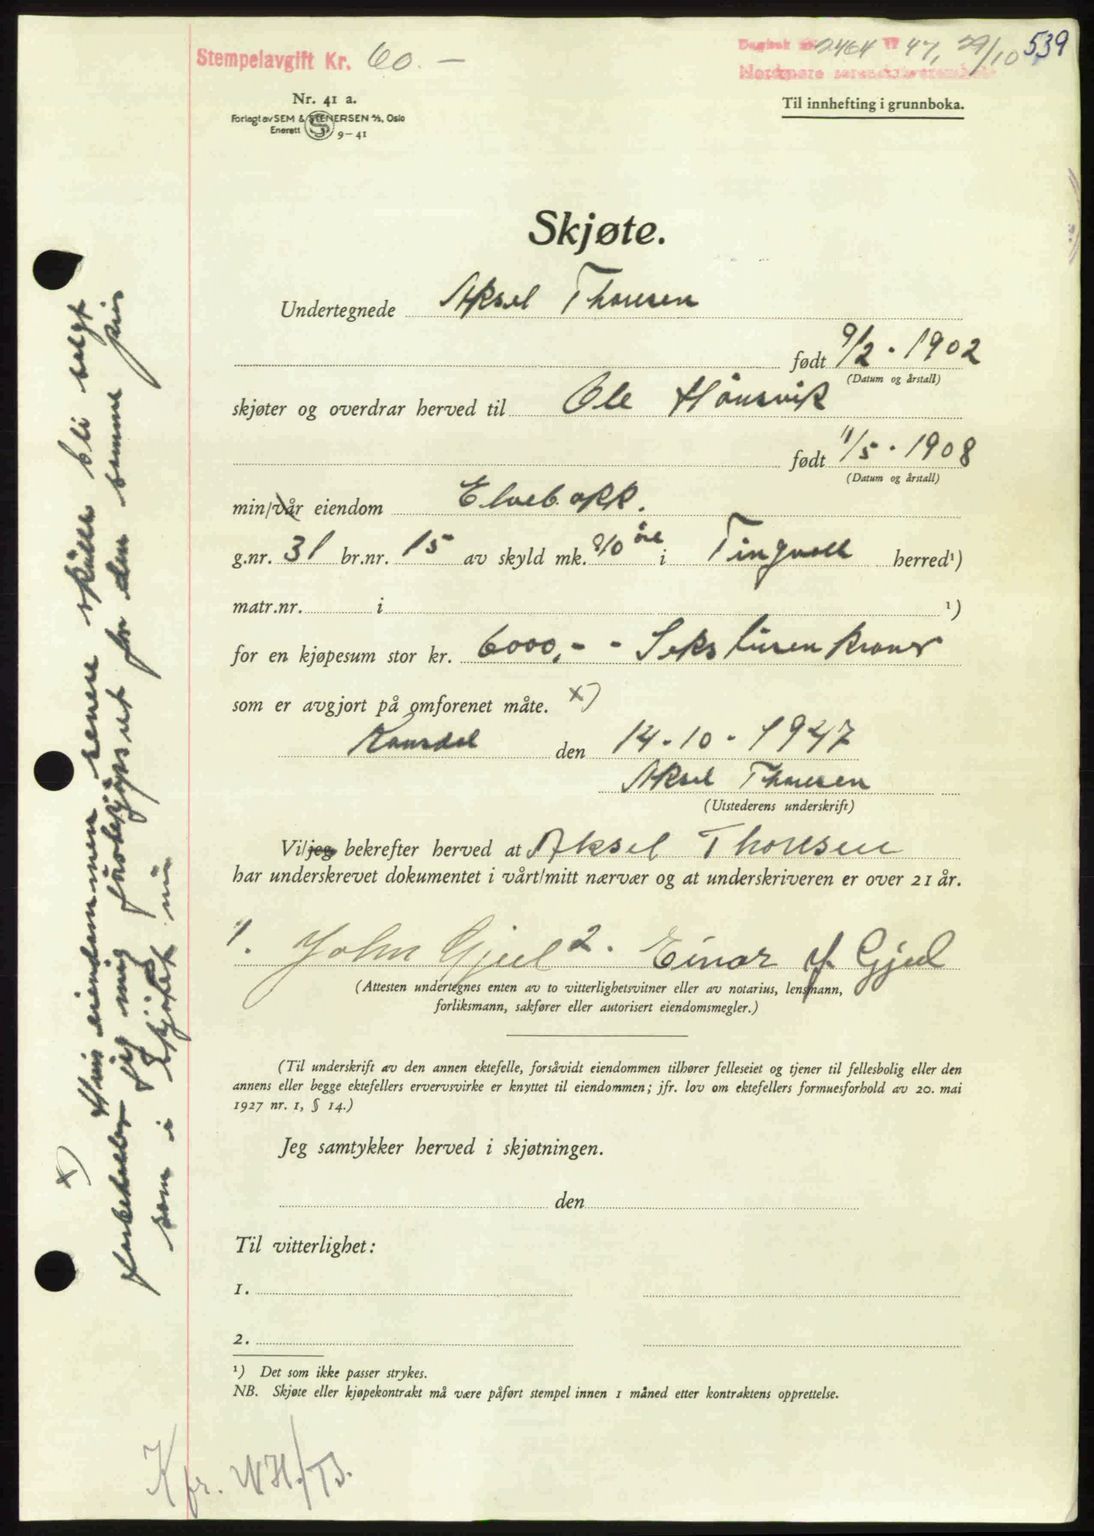 Stempelavgift Kr. 60.—
Dagbok nr. 2464 19 47, 29/10 539
Nordmøre sorenskriverembete
Nr. 41 a.
Forlagt av SEM & STENERSEN A/S, Oslo
Enerett 9-41
Til innhefting i grunnboka.
Skjøte.
Undertegnede Aksel Thonsen
født 9/2 - 1902
(Datum og årstall)
skjøter og overdrar herved til Ole Hånsvik
født 11/5 - 1908
(Datum og årstall)
min/vår eiendom Elvebakk.
g.nr. 31 br.nr. 15 av skyld mk. øre i Tingvoll herred¹)
matr.nr. i ¹)
for en kjøpesum stor kr. 6000,- - Seks tusen kroner
som er avgjort på omforenet måte. x)
Kansdal den 14-10-1947
Aksel Thonsen
(Utstederens underskrift)
Vi/jeg bekrefter herved at Aksel Thonsen
har underskrevet dokumentet i vårt/mitt nærvær og at underskriveren er over 21 år.
1. John Gjul 2. Einar J. Gjul
(Attesten undertegnes enten av to vitterlighetsvitner eller av notarius, lensmann,
forliksmann, sakfører eller autorisert eiendomsmegler.)
(Til underskrift av den annen ektefelle, forsåvidt eiendommen tilhører felleseiet og tjener til fellesbolig eller den
annens eller begge ektefellers ervervsvirke er knyttet til eiendommen; jfr. lov om ektefellers formuesforhold av 20. mai
1927 nr. 1, § 14.)
Jeg samtykker herved i skjøtningen.
den
Til vitterlighet:
1.
2.
¹) Det som ikke passer strykes.
NB. Skjøte eller kjøpekontrakt må være påført stempel innen 1 måned etter kontraktens opprettelse.
x) Hvis eiendommen senere skulle bli solgt
forbeholder jeg mig förkjøpsret for den samme pris
som i skjøtet nu
Kfr. WH/TB.